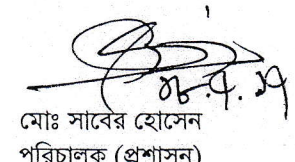 মোঃ সাবের হোসেন
পরিচালক (প্রশাসন)